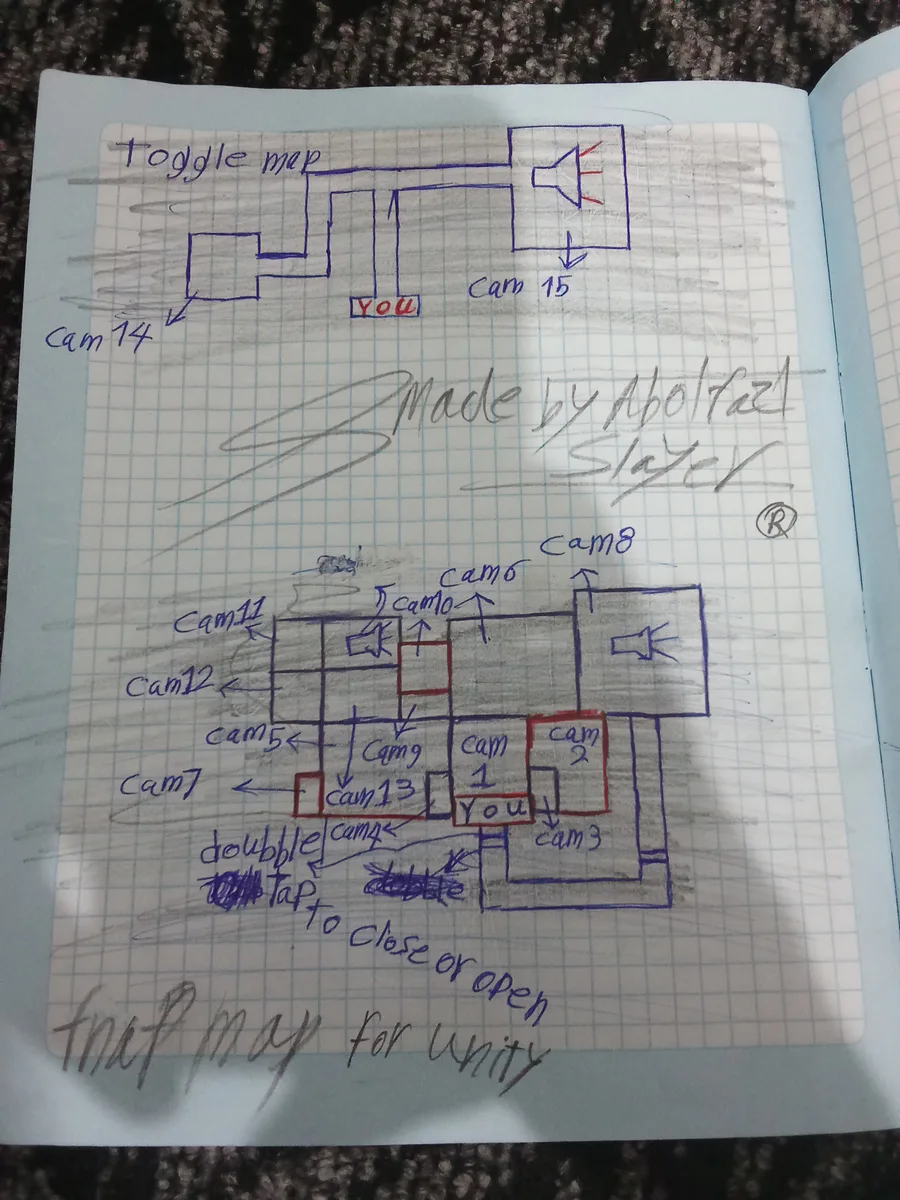 Toggle map
cam 15
You
cam 14
Made by Abolfazl
Slayer
®
cam8
cam6
cam10
cam11
cam12
cam5
cam9
cam
1
cam
2
cam7
cam13
You
cam4
cam3
doubble
Tap
To
close or open
fnaf map for unity